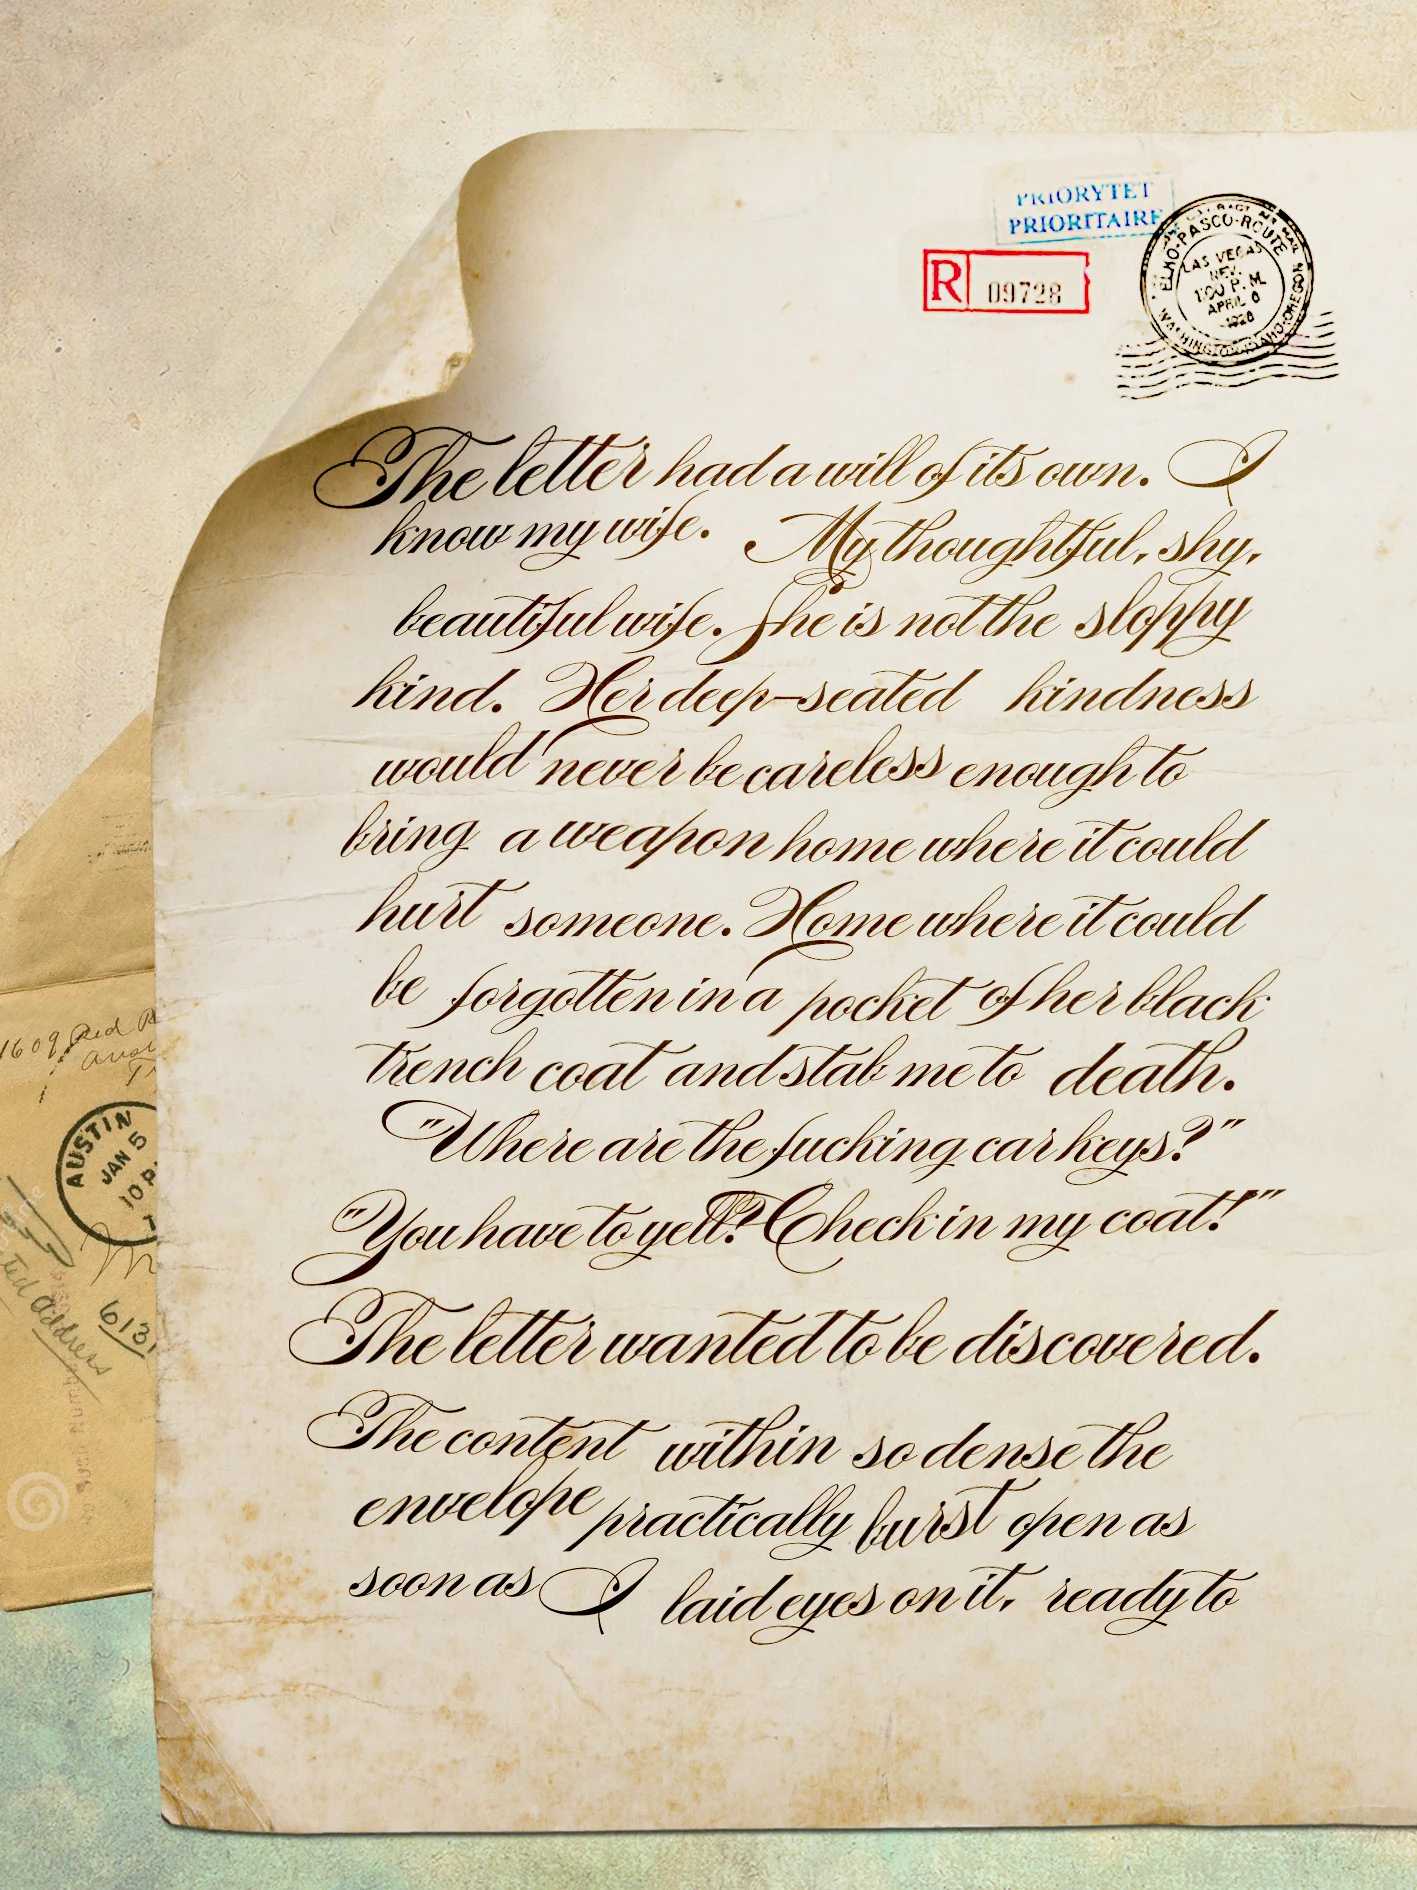 PRIORYTET
PRIORITAIRE
R 09728
ELKO-PASCO-ROUTE
LAS VEGAS
NEV.
1:00 P.M.
APRIL 6
The letter had a will of its own. I
know my wife. My thoughtful, shy,
beautiful wife. She is not the sloppy
kind. Her deep-seated kindness
would never be careless enough to
bring a weapon home where it could
hurt someone. Home where it could
be forgotten in a pocket of her black
trench coat and stab me to death.
"Where are the fucking car keys?"
"You have to yell? Check in my coat!"
The letter wanted to be discovered.
The content within so dense the
envelope practically burst open as
soon as I laid eyes on it, ready to
1609 Red
AUSTIN
JAN 5
10 P
613
address